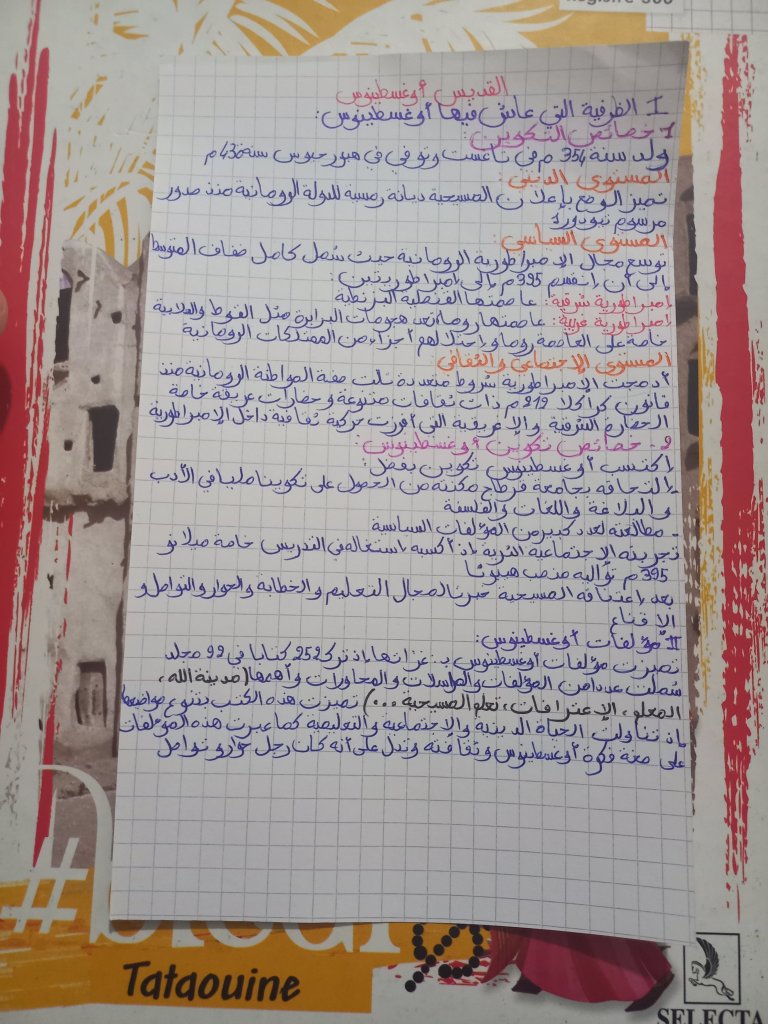 القديس أوغسطينوس
I الظرفية التي عاش فيها أوغسطينوس:
1- خصائص التكوين:
ولد سنة 354 م في تاغست وتوفي في هيبور حيوس سنة 430 م
المستوى الديني:
تميز الوضع بإعلان المسيحية ديانة رمسية للدولة الرومانية منذ صدور
مرسوم تيودورا
المستوى السياسي:
توسع مجال الإمبراطورية الرومانية حيث شمل كامل ضفاف المتوسط
إلى أن إنقسم 395 م إلى إمبراطوريتين:
إمبراطورية شرقية: عاصمتها القسطنطينية البزنطية
إمبراطورية غربية: عاصمتها روما، تعد هجومات البرابرة مثل القوط
خاصة على العاصمة روما وإحتلالهم أجزاء من الممتلكات الرومانية
المستوى الإجتماعي والثقافي
أدمجت الإمبراطورية شروط متعددة نلت صفة المواطنة الرومانية منذ
قانون كراكلا 212 م ذات ثقافات متنوعة وحضارات عريقة خاصة
الحضارة الشرقية والإغريقية التي أفرزت حركية ثقافية داخل الإمبراطورية
2- خصائص تكوين أوغسطينوس:
إكتسب أوغسطينوس تكوين بفضل:
- إلتحاقه بجامعة قرطاج مكنته من الحصول على تكوينا صلبا في الأدب
والبلاغة واللغات والفلسفة
- مطالعته لعدد كبير من المؤلفات السياسية
تجربته الإجتماعية الثرية إذ أكسبه إشتغاله في التدريس خاصة ميلانو
395 م توليه منصب هيبونا
بعد إعتناقه المسيحية خبرنا لمجال التعليم والخطابة والحوار والتواصل و
الإقناع
II مؤلفات أوغسطينوس:
تميزت مؤلفات أوغسطينوس ب: غزارتها إذ ترك 252 كتابا في 92 مجلد
شملت عددا من المؤلفات والمراسلات والمحاورات وأهمها (مدينة الله،
المعلم، الإعترافات، تعلم المسيحية ...) تميزت هذه الكتب بتنوع مواضيعها
إذ تناولت الحياة الدينية والإجتماعية والتعليمية كما عبرت هذه المؤلفات
على سعة فكرة أوغسطينوس وثقافته وتدل على أنه كان رجل حوار وتواصل
Tataouine
SELECTA